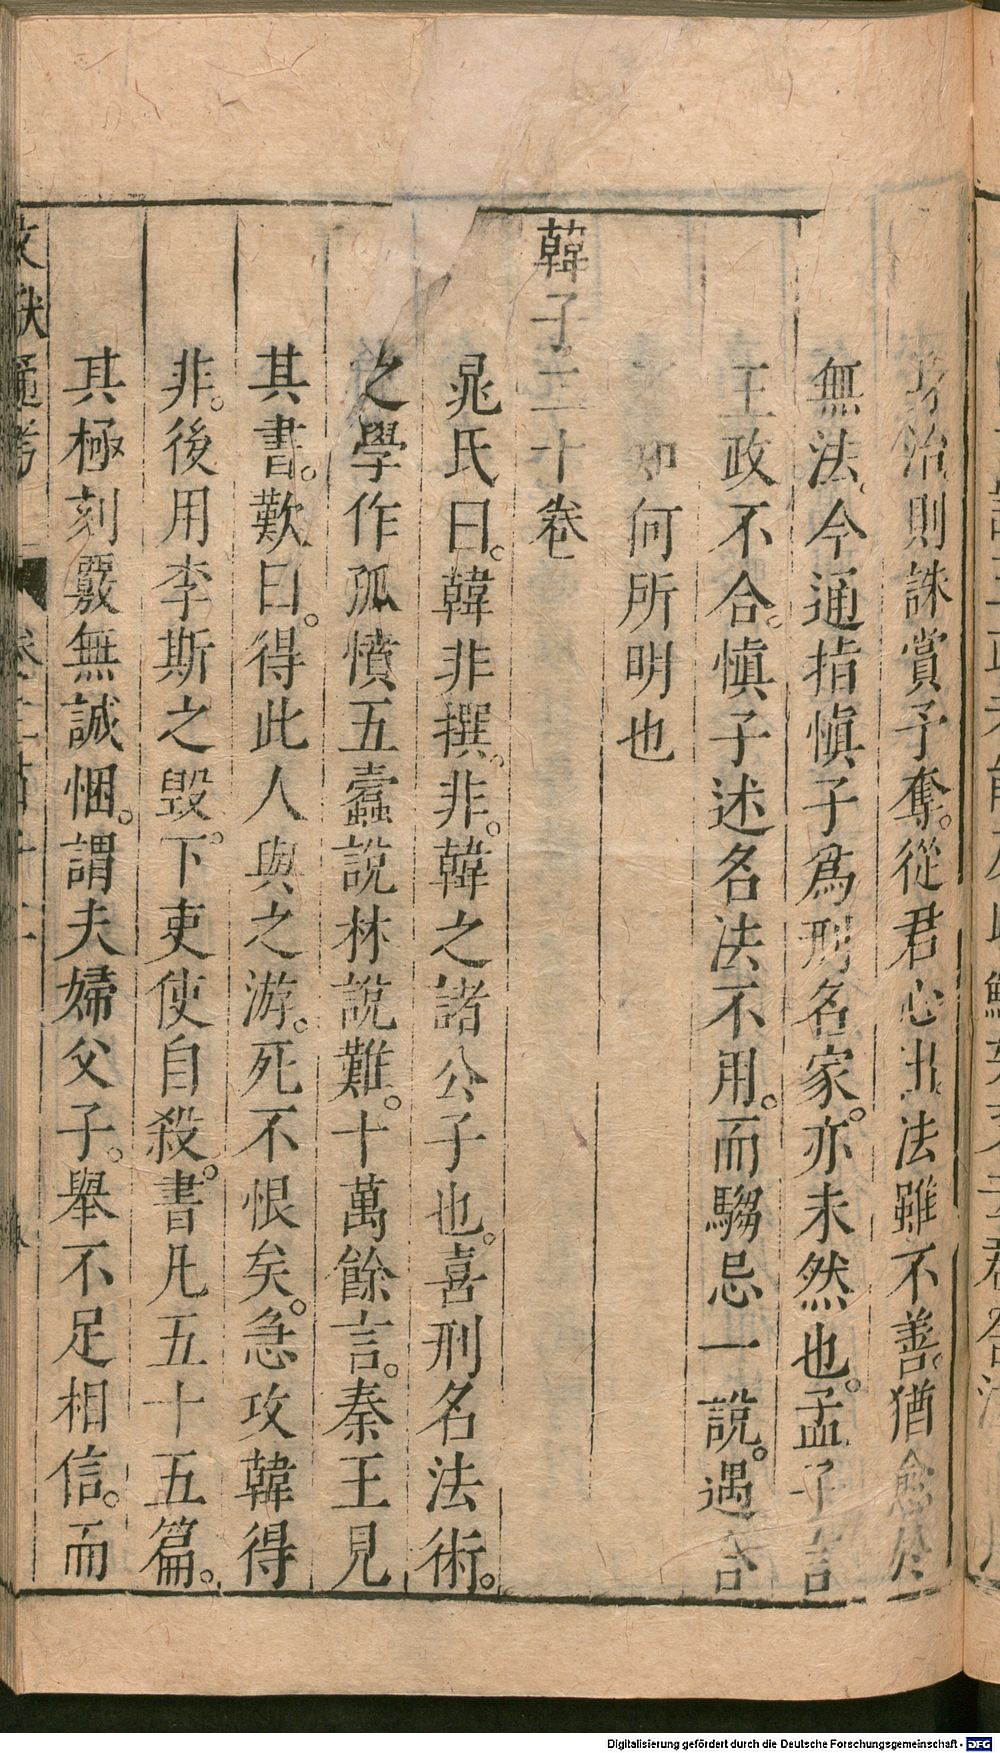 治則誅賞予奪。從君心出。法雖不善。猶愈於
無法。今通指愼子爲刑名家。亦未然也。孟子言
王政不合。愼子述名法不用。而騶忌一說。遇合
何所明也
韓子二十卷
晁氏曰。韓非撰。非。韓之諸公子也。喜刑名法術。
之學作孤憤五蠹說林說難。十萬餘言。秦王見
其書。歎曰。得此人與之游。死不恨矣。急攻韓得
非。後用李斯之毀。下吏使自殺。書凡五十五篇。
其極刻覈無誠悃。謂夫婦父子。舉不足相信。而
文獻通考
Digitalisierung gefördert durch die Deutsche Forschungsgemeinschaft - DFG